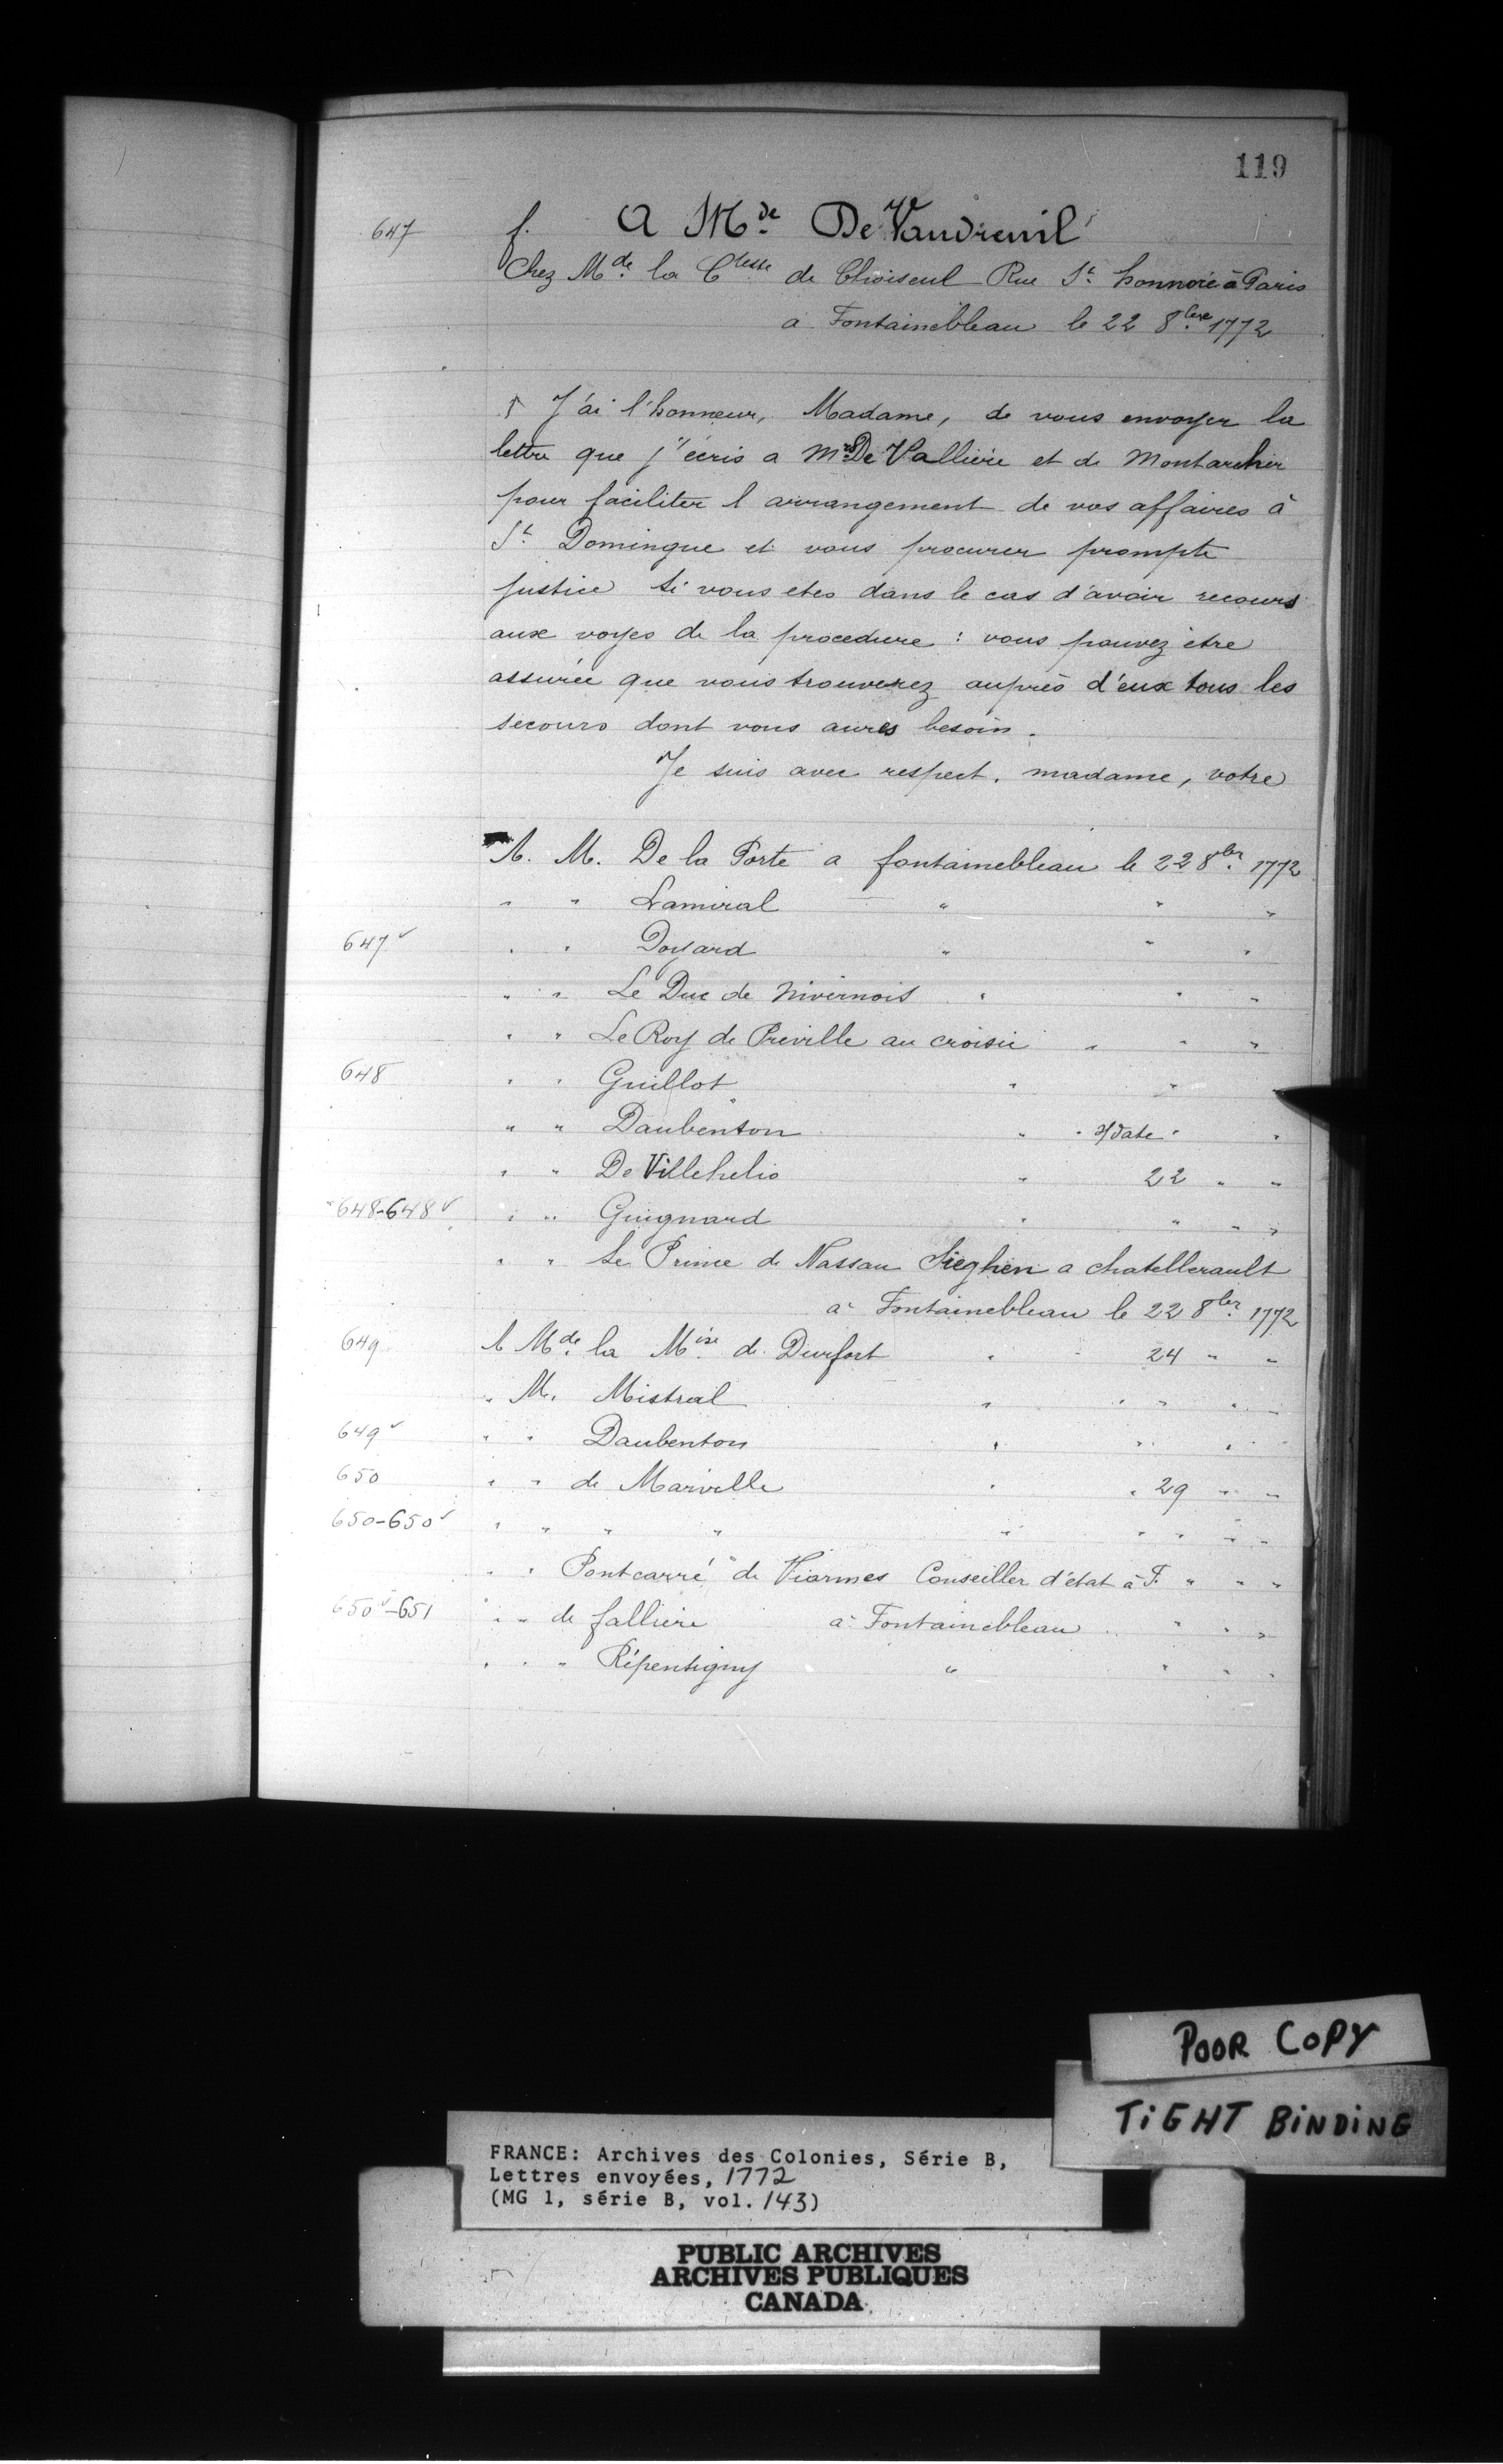 119
647 f. A Mde. De Vaudreuil
Chez Mde. la Ctesse de Choiseul Rue St. honnoré à Paris
à Fontainebleau le 22 8bre. 1772
J'ai l'honneur, Madame, de vous envoyer la
lettre que j'écris a Mrs. De Vallière et de Montarcher
pour faciliter l arrangement de vos affaires à
St. Domingue et vous procurer prompte
justice si vous etes dans le cas d'avoir recours
aux voyes de la procedure : vous pouvez être
assurée que vous trouverez auprès d'eux tous les
secours dont vous aures besoin.
Je suis avec respect. madame, votre
A. M. De la Porte a fontainebleau le 22 8ber. 1772
" " Lamiral " " "
647v " " Doyard " " "
" " Le Duc de Nivernois " " "
" " Le Roy de Preville au croisic " " "
648 " " Guillot " " "
" " Daubenton " " s/date " "
" " De Villehelio " 22 " "
648-648v " " Guignard " " " "
" " Le Prince de Nassau Sieghen a chatellerault
à Fontainebleau le 22 8ber. 1772
649 A Mde. la Mise. de Durfort " " 24 " "
" M. Mistral " " " " "
649v " " Daubenton " " " "
650 " " de Marville " " 29 " "
650-650v " " " " " " " " "
" " Pontcarré de Viarmes Conseiller d'état à F. " " "
650v-651 " " de falliere à Fontainebleau " " " "
" " " Répentigny " " " "
POOR COPY
TIGHT BINDING
FRANCE: Archives des Colonies, Série B,
Lettres envoyées, 1772
(MG 1, série B, vol. 143)
PUBLIC ARCHIVES
ARCHIVES PUBLIQUES
CANADA